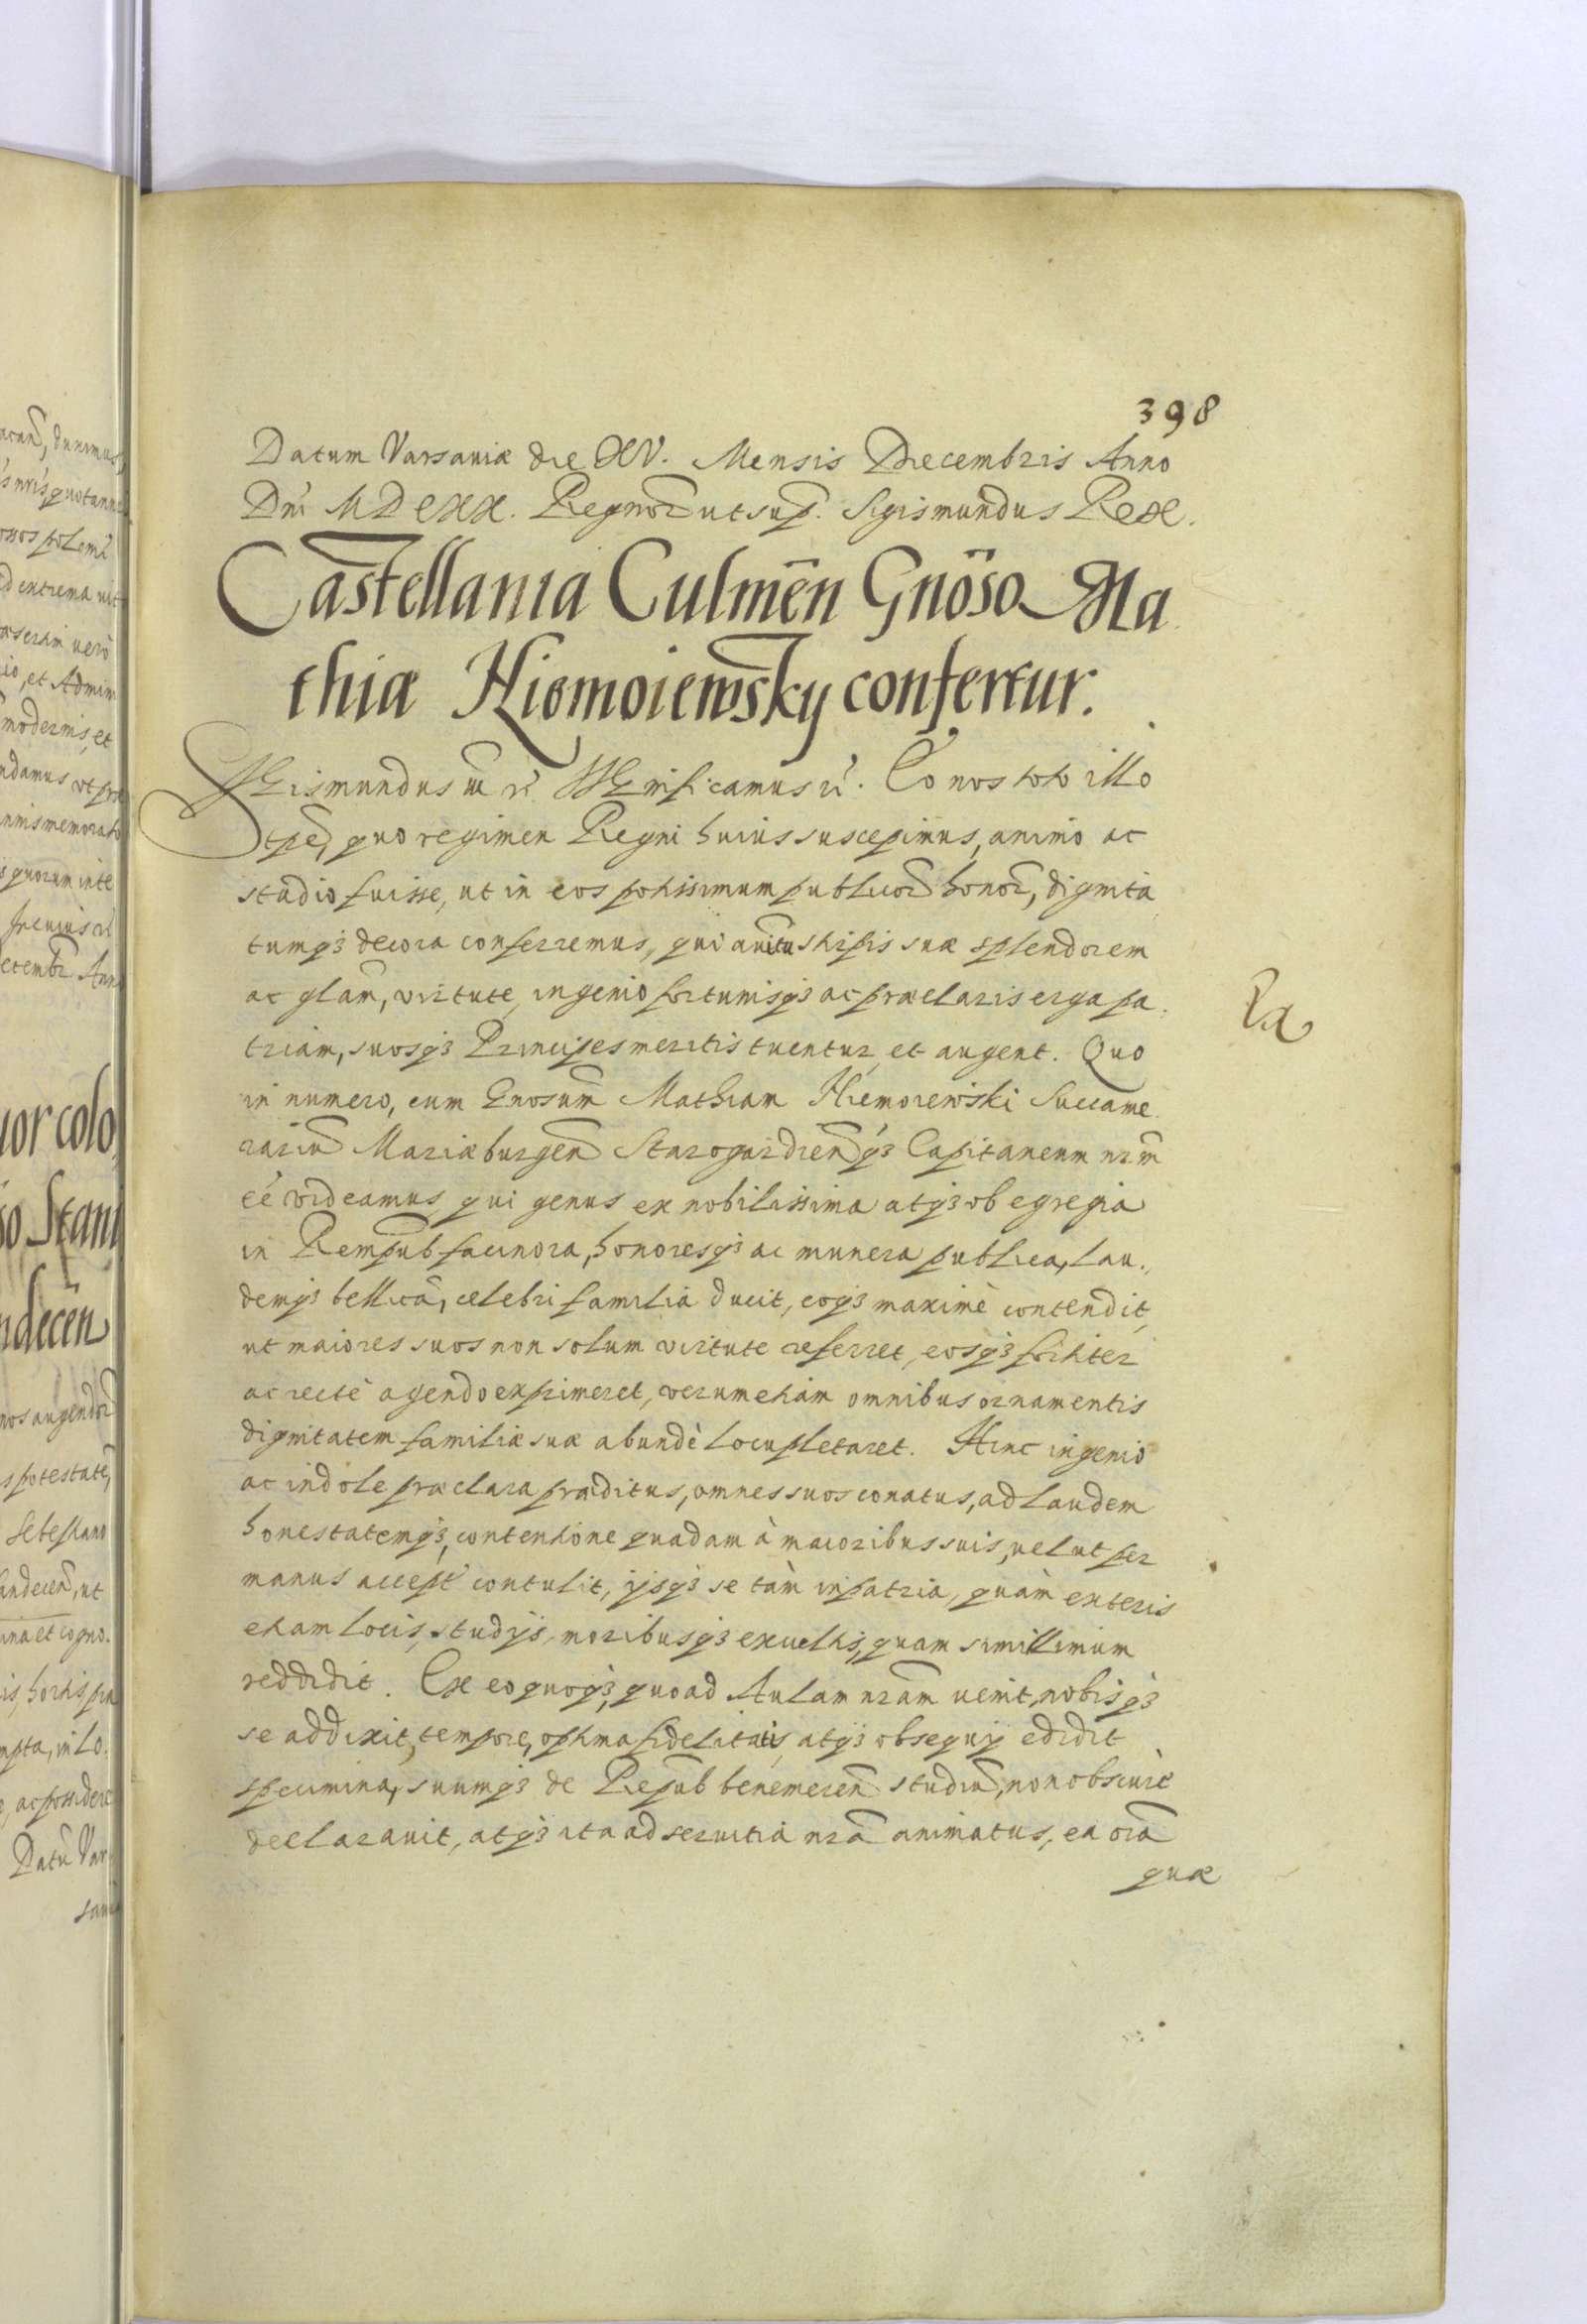 398
Datum Varsaviæ die XV. Mensis Decembris Anno
Dni MDCXX. Regnor ut sup. Sigismundus Rex.
Castellania Culmen Gnoso Ma
thiæ Niemoiewsky confertur.
Sigismundus III rc Significamus rc. Eo nos toto illo
tpe, quo regimen Regni huius suscepimus, animo ac
studio fuisse, ut in eos potissimum publicor honor, dignita
tumq3 decora conferremus, qui avitu stirpis suæ splendorem
ac glam, virtute, ingenio fortunisq3 ac præclaris erga pa,
triam, suosq3 Principes meritis tuentur et augent. Quo
in numero, cum Gnosum Mathiam Niemoiewski Succame
rariu Mariæburgen Starogardienq3 Capitaneum nrm
ee videamus, qui genus ex nobilissima atq3 ob egregia
in Rempub facinora, honoresq3 ac munera publica, lau.,
demq3 bellica, celebri familia ducit, eoq3 maximè contendit,
ut maiores suos non solum virtute referret, eosq3 fortiter
ac rectè agendo exprimeret, verum etiam omnibus ornamentis
dignitatem familiæ suæ abundè locupletaret. Hinc ingenio
ac indole præclara præditus, omnes suos conatus, ad laudem
honestatemq3, contentione quadam à maioribus suis, velut per
manus accept contulit, ijsq3 se tàm in patria, quàm exteris
etiam locis, studijs, moribusq3 excultis, quam simillimum
reddidit. Ex eo quoq3, quo ad Aulam nram venit, nobisq3
se addixit, tempore, optima fidelitatis, atq3 obsequij edidit
specimina, suumq3 de Repub benemeren studiu, non obscurè
declaravit, atq3 ita ad servitia nra animatus, ea oia
quæ